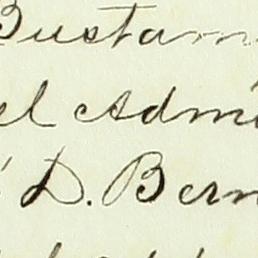 Bustam
el Admi
D. Bern